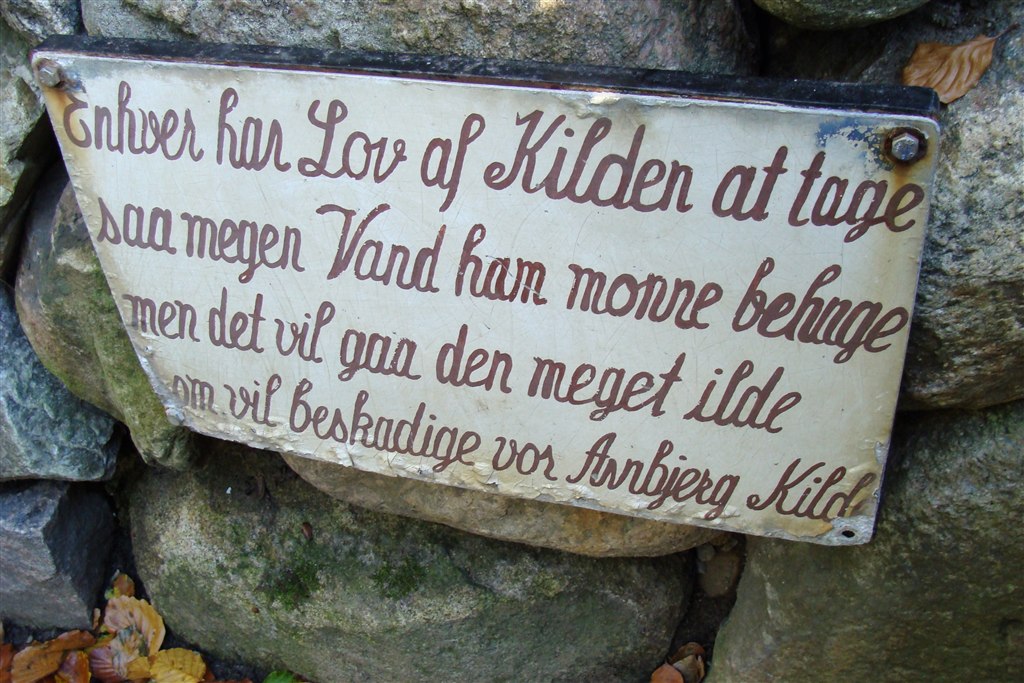 Enhver har Lov af Kilden at tage
saa megen Vand ham monne behage
men det vil gaa den meget ilde
om vil beskadige vor Arnbjerg Kild